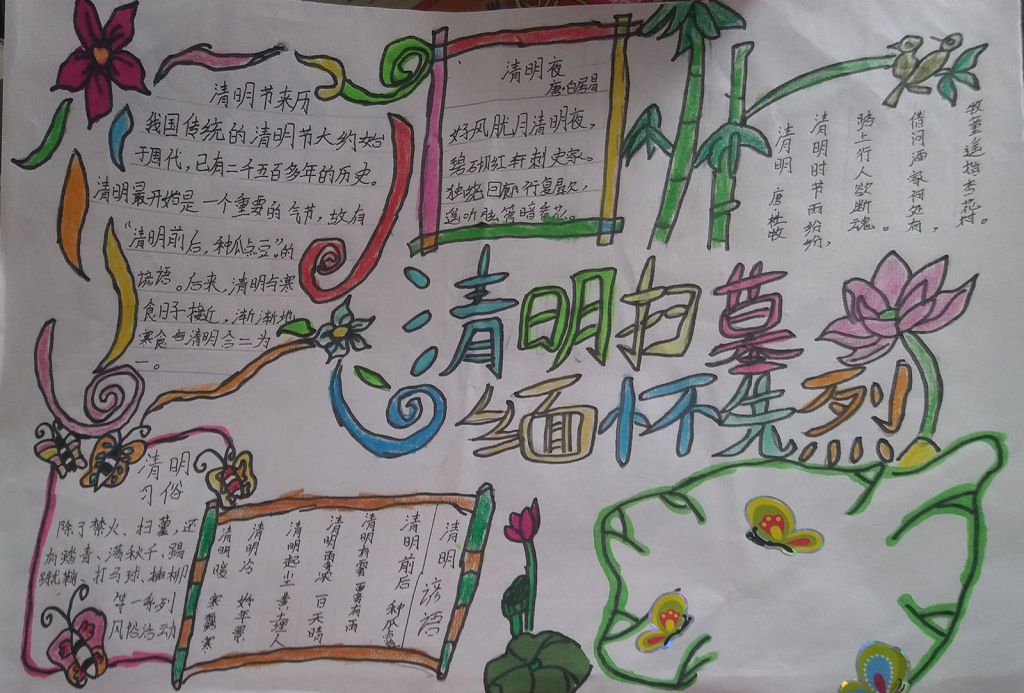 清明节来历
我国传统的清明节大约始
于周代，已有二千五百多年的历史。
清明最开始是一个重要的气节，故有
“清明前后，种瓜点豆”。的
谚语。后来，清明与寒
食日子接近，渐渐地
寒食与清明合二为
一。
清明夜
唐·白居易
好风胧月清明夜，
碧砌红轩刺史家。
独绕回廊行复歇，
遥听弦管暗看花。
清明 唐 杜牧
清明时节雨纷纷，
路上行人欲断魂。
借问酒家何处有，
牧童遥指杏花村。
清明扫墓
缅怀先烈
清明
习俗
除了禁火、扫墓，还
有踏青、荡秋千、踢
蹴鞠、打马球、插柳
等一系列
风俗活动
清明 谚语
清明前后 种瓜点豆
清明有雾 夏有雨
清明雨 百天晴
清明起尘 黄土埋人
清明冷 好年景
清明暖 寒露寒